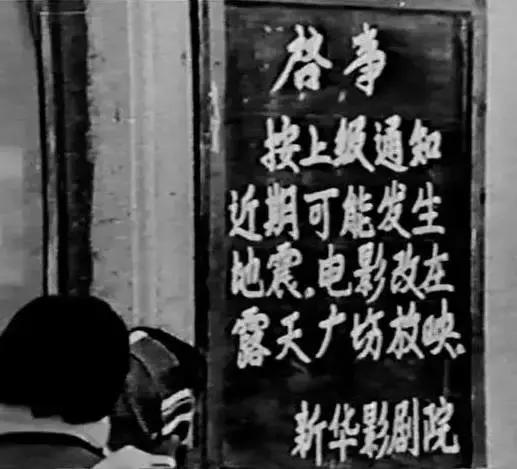 启事
按上级通知
近期可能发生
地震。电影改在
露天广场放映。
新华影剧院